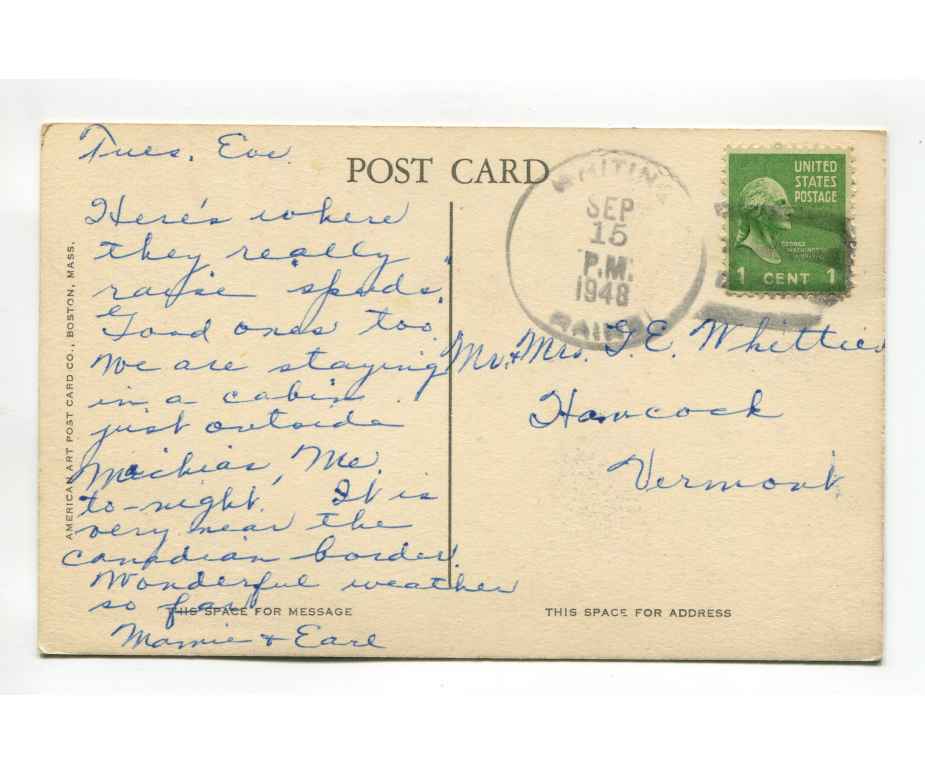 Tues. Eve.
POST CARD
Here's where
they really
raise spuds.
Good ones too
We are staying
in a cabin
just outside
Machias, Me.
to-night. It is
very near the
canadian border
Wonderful weather
so far
Mamie & Earl
THIS SPACE FOR MESSAGE
AMERICAN ART POST CARD CO., BOSTON, MASS.
WHITING
SEP
15
P.M.
1948
MAINE
UNITED
STATES
POSTAGE
GEORGE
WASHINGTON
1 CENT 1
Mr. & Mrs. G. E. Whittier
Hancock
Vermont
THIS SPACE FOR ADDRESS